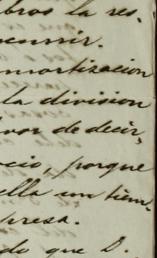 bros la res-
ocurrir.
mortizacion
la division
vor de decir,
ocio, porque
ella un tiem-
presa.
do que D.